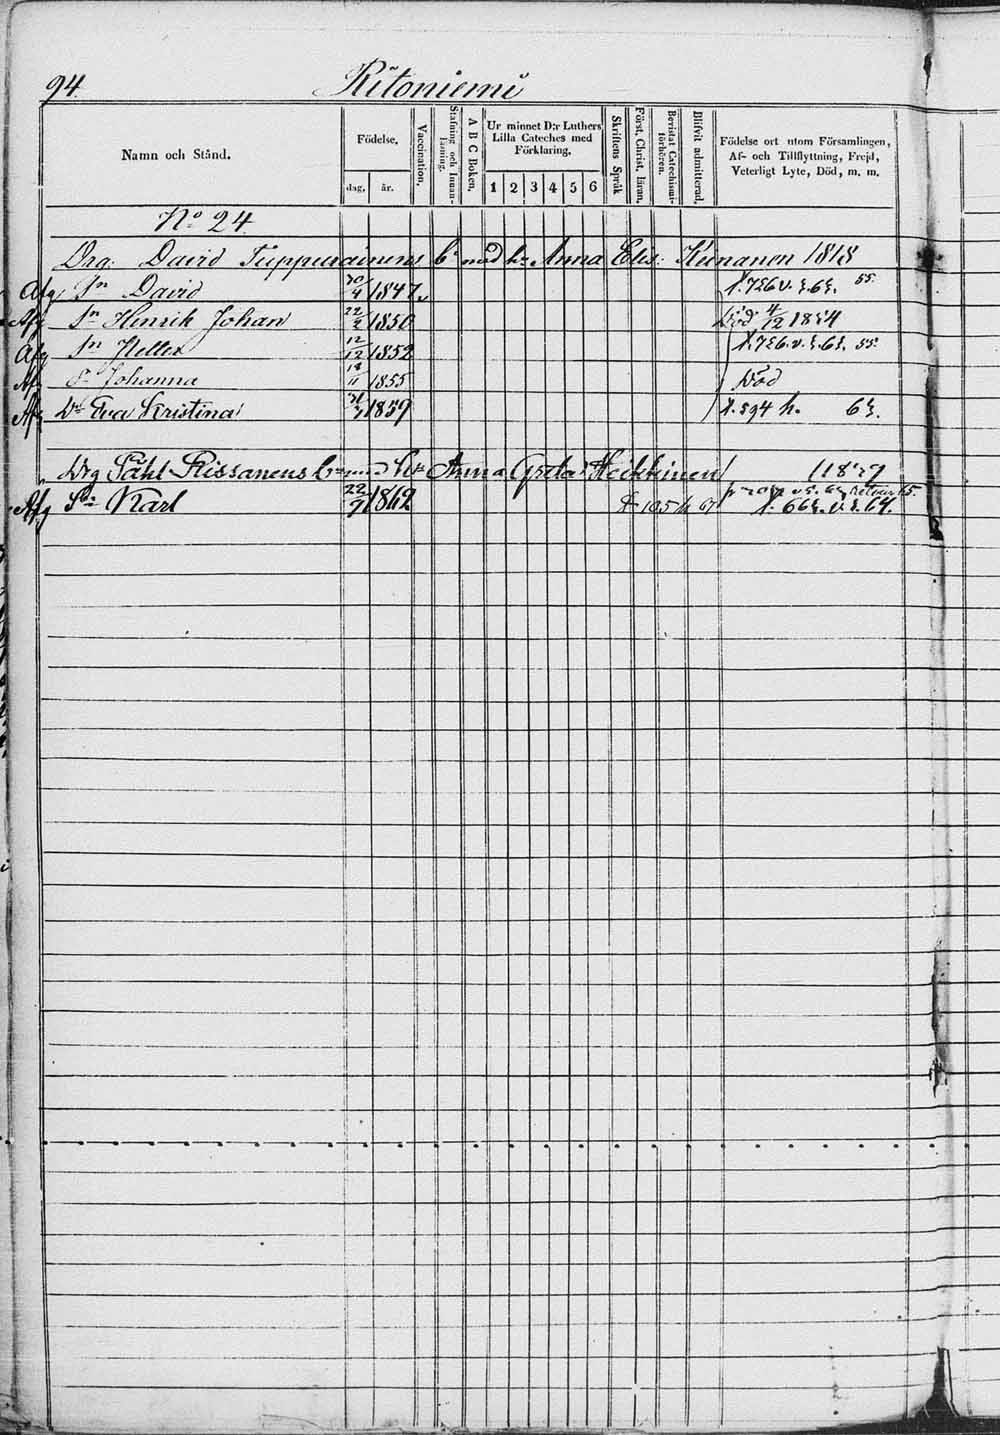 94. Ritoniemi
Namn och Stånd.
Födelse.
dag. år.
Vaccination.
Stafning och Innan-läsning.
A B C Boken.
Ur minnet D:r Luthers
Lilla Cateches med
Förklaring.
1 2 3 4 5 6
Skriftens Språk
Först. Christ. läran.
Bevistat Catechismi-förhören.
Blifvit admitterad.
Födelse ort utom Församlingen,
Af- och Tillflyttning, Frejd,
Veterligt Lyte, Död, m. m.
No 24
Drg. David Tuppurainens br med h: Anna Elis: Kiinanen 1818
Afg Sn David 30/4 1847
Afg Sn Henrik Johan 22/2 1850 Död 4/12 1854
Afg Sn Petter 12/12 1852
Afg Johanna 18/11 1855 Död
Afg Dr Eva Kristina 1859 f. 594 h. 63.
Drg Påhl Rissanens br med h. Anna Greta Heikkinen
Afg Sn Karl 22/7 1862 f 105 h 67